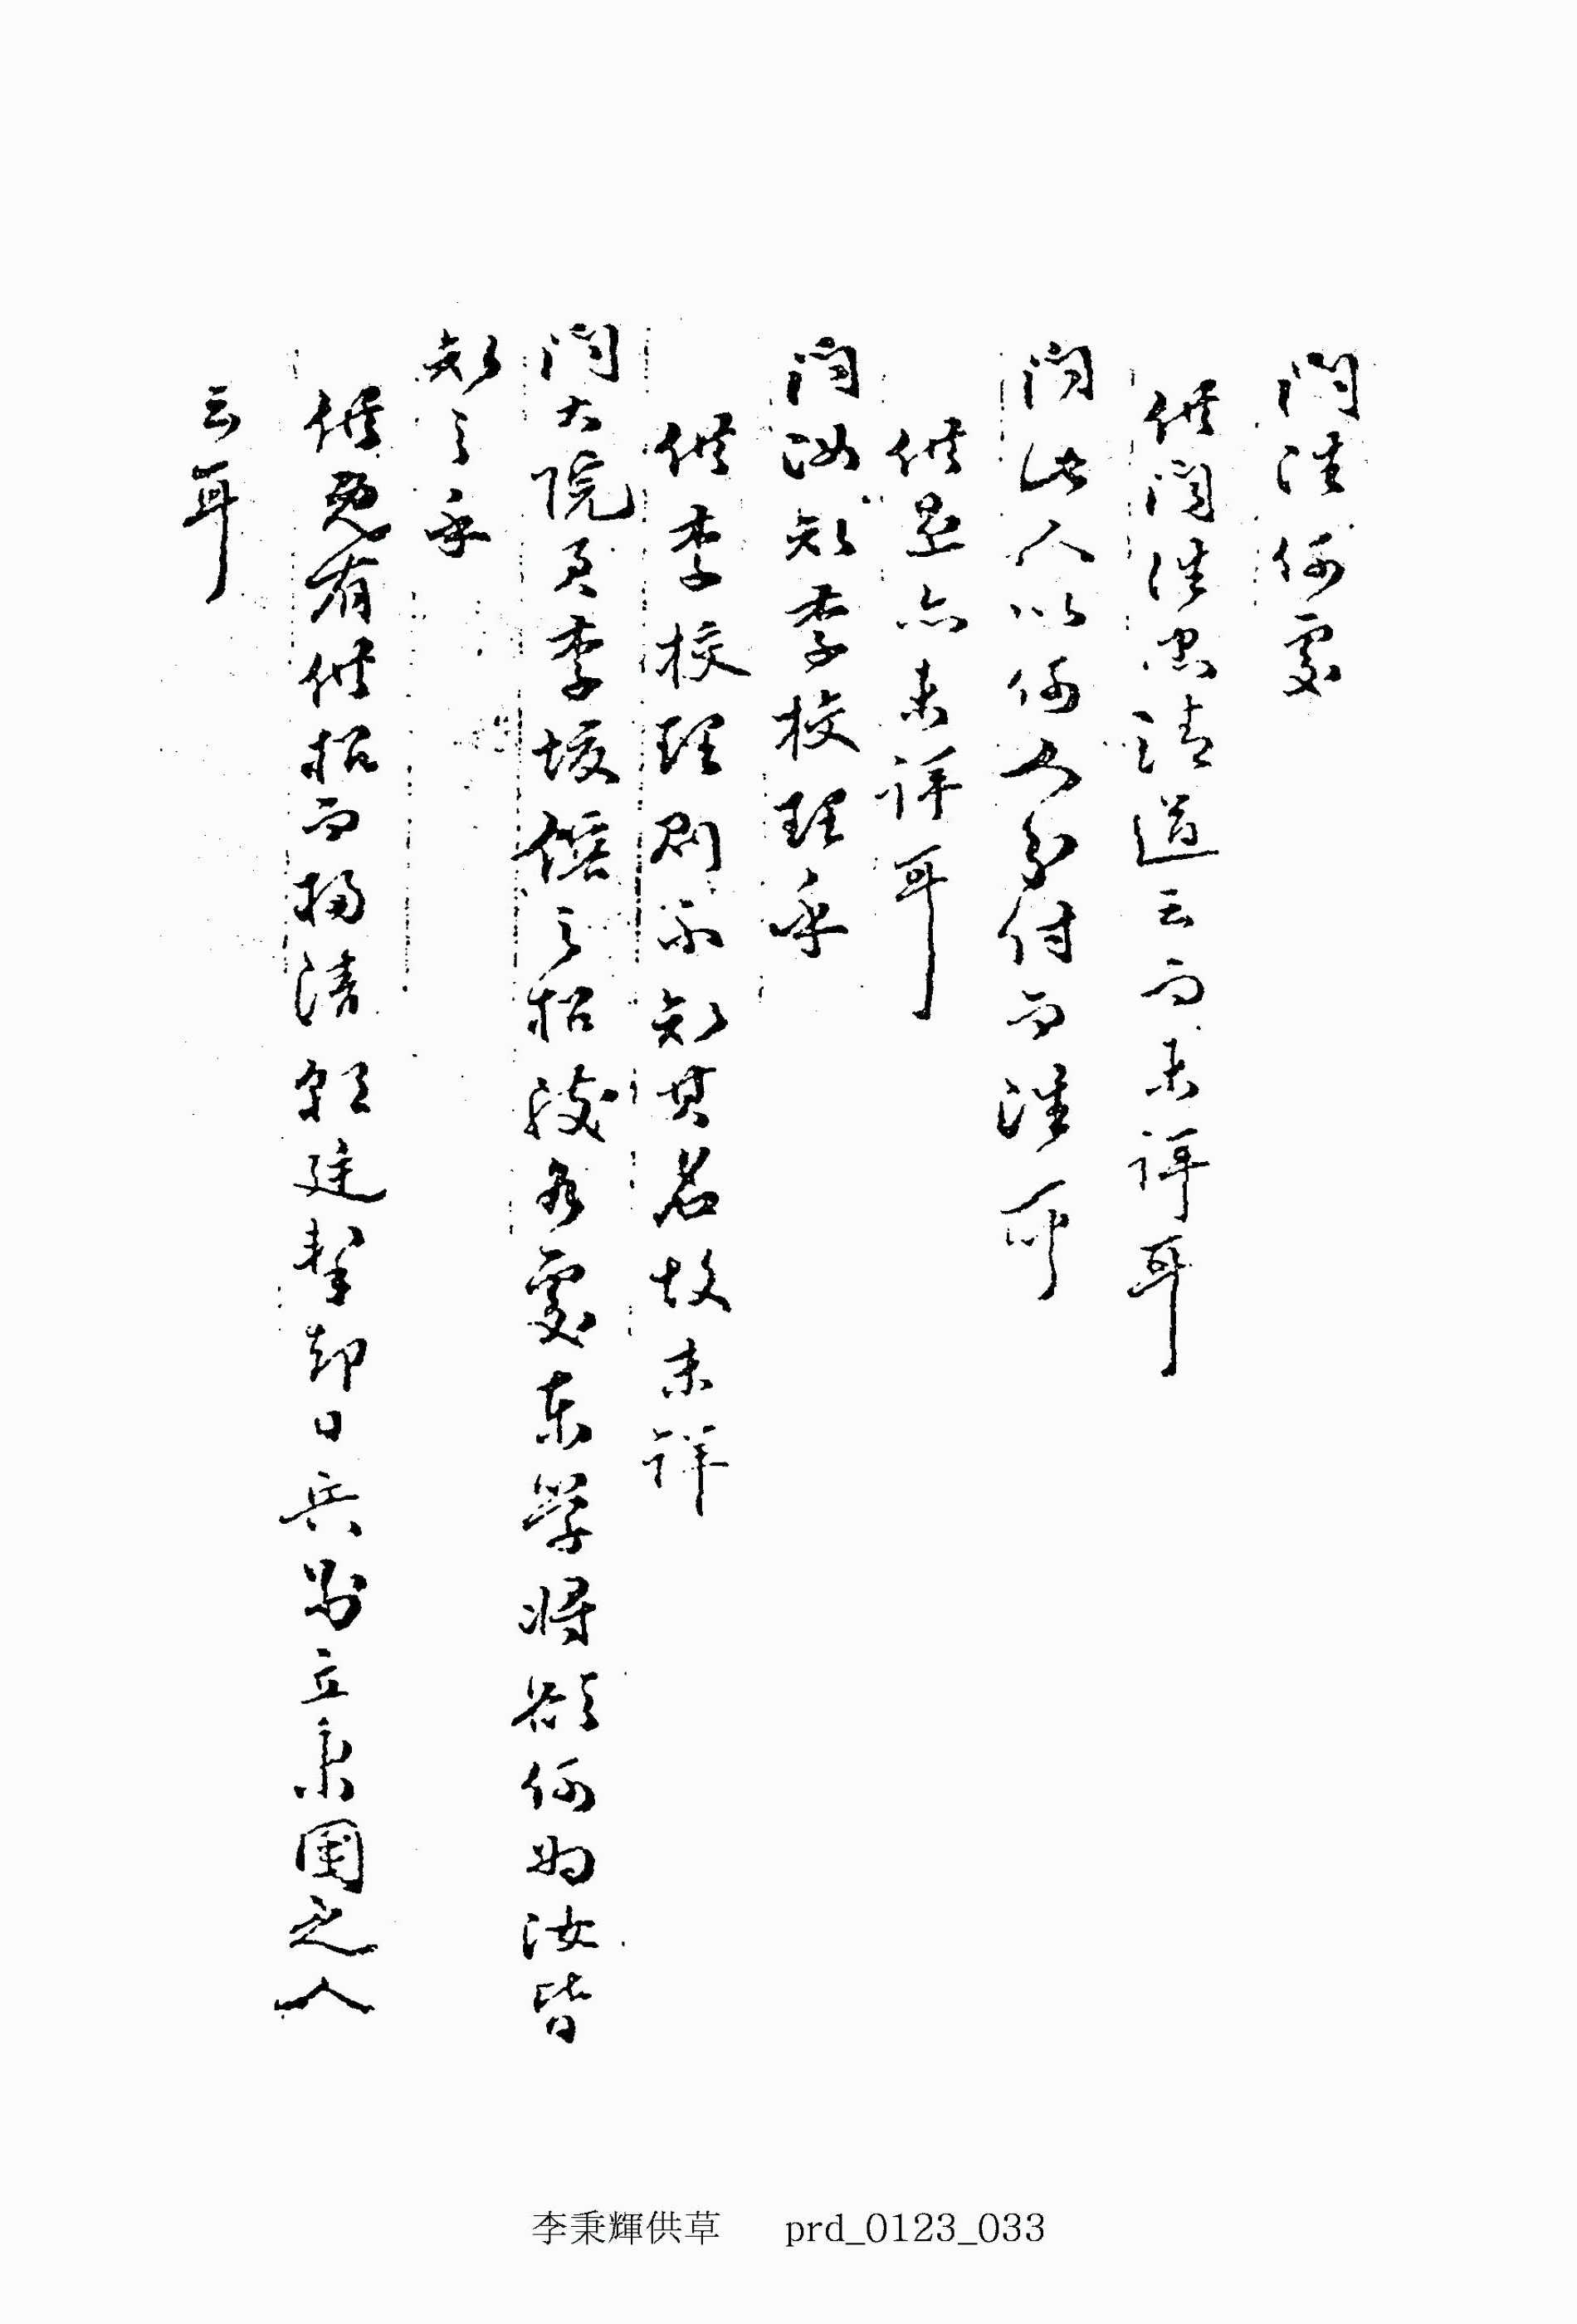 問往何處
供問往忠清道云而未詳耳
問此人以何如分付而往耶
供是亦未詳耳
問汝知李校理乎
供李校理則不知其名故未詳
問大院君李埈鎔之招致各處東學將欲何為汝皆
知之乎
供有供招而掃清朝廷擊却日兵別立東國之人
云耳
李秉輝供草 prd_0123_033